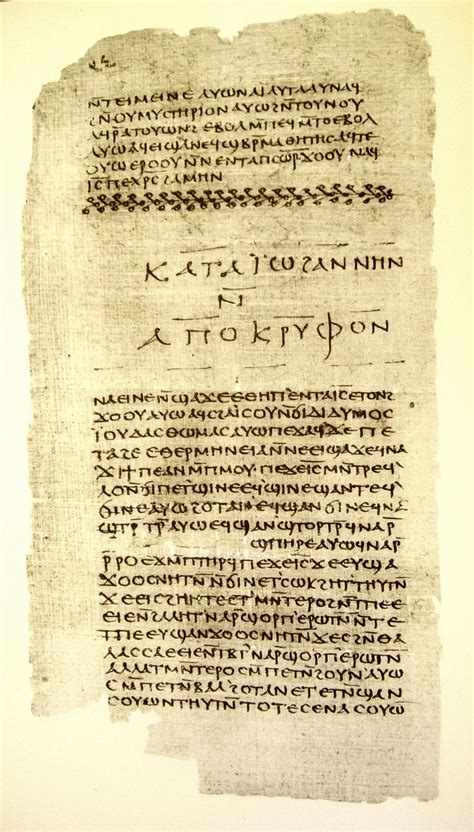 ⲛ̅ⲧⲉⲓⲙⲉⲓⲛⲉⲁⲩⲱⲛⲁⲓⲁⲩⲧⲁⲁⲩⲛⲁϥ
ϩⲛ̅ⲟⲩⲙⲩⲥⲧⲏⲣⲓⲟⲛⲁⲩⲱϩⲛ̅ⲧⲟⲩⲛⲟⲩ
ⲁϥⲣ̅ⲁⲧⲟⲩⲱⲛϩⲉⲃⲟⲗⲙ̅ⲡⲉϥⲙ̅ⲧⲟⲉⲃⲟⲗ
ⲁⲩⲱⲁϥⲉⲓϣⲁⲛⲉϥϣⲃⲣ̅ⲙⲁⲑⲏⲧⲏⲥⲁϥⲧⲉ
ⲟⲩⲱⲉⲣⲟⲟⲩⲛ̅ⲛⲉⲛⲧⲁⲡⲥⲱⲣ̅ϫⲟⲟⲩⲛⲁϥ
ⲓ̅ⲥ̅ⲡⲉⲭ̅ⲣ̅ⲥ̅ϩⲁⲙⲏⲛ
ⲕⲁⲧⲁⲓⲱϩⲁⲛⲛⲏⲛ
ⲛ̅
ⲁⲡⲟⲕⲣⲩⲫⲟⲛ
ⲛⲁⲉⲓⲛⲉⲛ̅ϣⲁϫⲉⲉⲑⲏⲡ̅ⲉⲛⲧⲁⲓ̅ⲥ̅ⲉⲧⲟⲛϩ
ϫⲟⲟⲩⲁⲩⲱⲁϥⲥϩⲁⲓⲥⲟⲩⲛ̅ϭⲓⲇⲓⲇⲩⲙⲟⲥ
ⲓ̈ⲟⲩⲇⲁⲥⲑⲱⲙⲁⲥⲁⲩⲱⲡⲉϫⲁϥϫⲉⲡⲉ
ⲧⲁϩⲉⲉⲑⲉⲣⲙⲏⲛⲉⲓⲁⲛ̅ⲛⲉⲉⲓϣⲁϫⲉϥⲛⲁ
ϫⲓϯⲡⲉⲁⲛⲙ̅ⲡⲙⲟⲩⲡⲉϫⲉⲓ̅ⲥ̅ⲙⲛ̅ⲧⲣⲉϥ
ⲗⲟⲛ̅ϭⲓⲡⲉⲧϣⲓⲛⲉⲉϥϣⲓⲛⲉϣⲁⲛⲧⲉϥ
ϭⲓⲛⲉⲁⲩⲱϩⲟⲧⲁⲛⲉϥϣⲁⲛϭⲓⲛⲉϥⲛⲁ
ϣⲧⲣ̅ⲧⲣ̅ⲁⲩⲱⲉϥϣⲁⲛϣⲧⲟⲣⲧⲣ̅ϥⲛⲁⲣ̅
ϣⲡⲏⲣⲉⲁⲩⲱϥⲛⲁⲣ̅
ⲣ̅ⲣⲟⲉϫⲙ̅ⲡⲧⲏⲣϥⲡⲉϫⲉⲓ̅ⲥ̅ϫⲉⲉⲩϣⲁ
ϫⲟⲟⲥⲛⲏⲧⲛ̅ⲛ̅ϭⲓⲛⲉⲧⲥⲱⲕϩⲏⲧⲧⲏⲩⲧⲛ̅
ϫⲉⲉⲓⲥϩⲏⲏⲧⲉⲉⲧⲙⲛ̅ⲧⲉⲣⲟϩⲛ̅ⲧⲡⲉ
ⲉⲉⲓⲉⲛ̅ϩⲁⲗⲏⲧⲛⲁⲣ̅ϣⲟⲣⲡⲉⲣⲱⲧⲛ̅ⲛ̅ⲧⲉ
ⲧⲡⲉⲉⲩϣⲁⲛϫⲟⲟⲥⲛⲏⲧⲛ̅ϫⲉⲥϩⲛ̅ⲑⲁ
ⲗⲁⲥⲥⲁⲉⲉⲓⲉⲛ̅ⲧⲃⲧⲛⲁⲣ̅ϣⲟⲣⲡⲉⲣⲱⲧⲛ̅
ⲁⲗⲗⲁⲧⲙⲛ̅ⲧⲉⲣⲟⲥⲙ̅ⲡⲉⲧⲛ̅ϩⲟⲩⲛⲁⲩⲱ
ⲥⲙ̅ⲡⲉⲧⲛ̅ⲃⲁⲗϩⲟⲧⲁⲛⲉⲧⲉⲧⲛ̅ϣⲁⲛ
ⲥⲟⲩⲱⲛⲧⲏⲩⲧⲛ̅ⲧⲟⲧⲉⲥⲉⲛⲁⲥⲟⲩⲱ